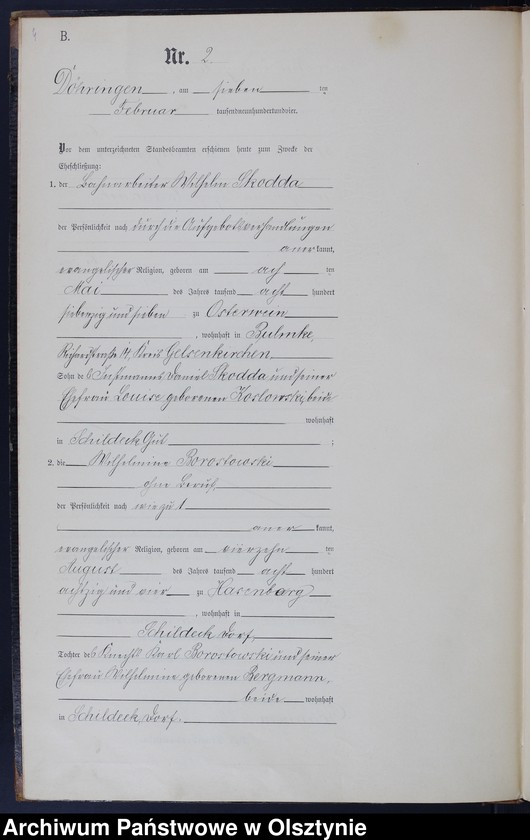 B.
Nr. 2
Döhringen, am sieben ten
Februar tausendneunhundertundvier.
Vor dem unterzeichneten Standesbeamten erschienen heute zum Zwecke der
Eheschließung:
1. der Bahnarbeiter Wilhelm Skodda
der Persönlichkeit nach durch die Aufgebotsverhandlungen
anerkannt,
evangelischer Religion, geboren am ach ten
Mai des Jahres tausend acht hundert
siebenzig und sieben zu Osterwein
, wohnhaft in Bulmke,
Richardstraße Kreis Gelsenkirchen
Sohn des Instmanns Daniel Skodda und seiner
Ehefrau Louise geborenen Koslowski, beide
wohnhaft
in Schildeck Gut ;
2. die Wilhelmine Borostowski
ohne Beruf
der Persönlichkeit nach wie zu 1
aner kannt,
evangelischer Religion, geboren am vierzehn ten
August des Jahres tausend acht hundert
achtzig und vier zu Hasenberg
, wohnhaft in
Schildeck Dorf,
Tochter des Knechts Karl Borostowski und seiner
Ehefrau Wilhelmine geborenen Bergmann,
beide wohnhaft
in Schildeck, Dorf.
Archiwum Państwowe w Olsztynie